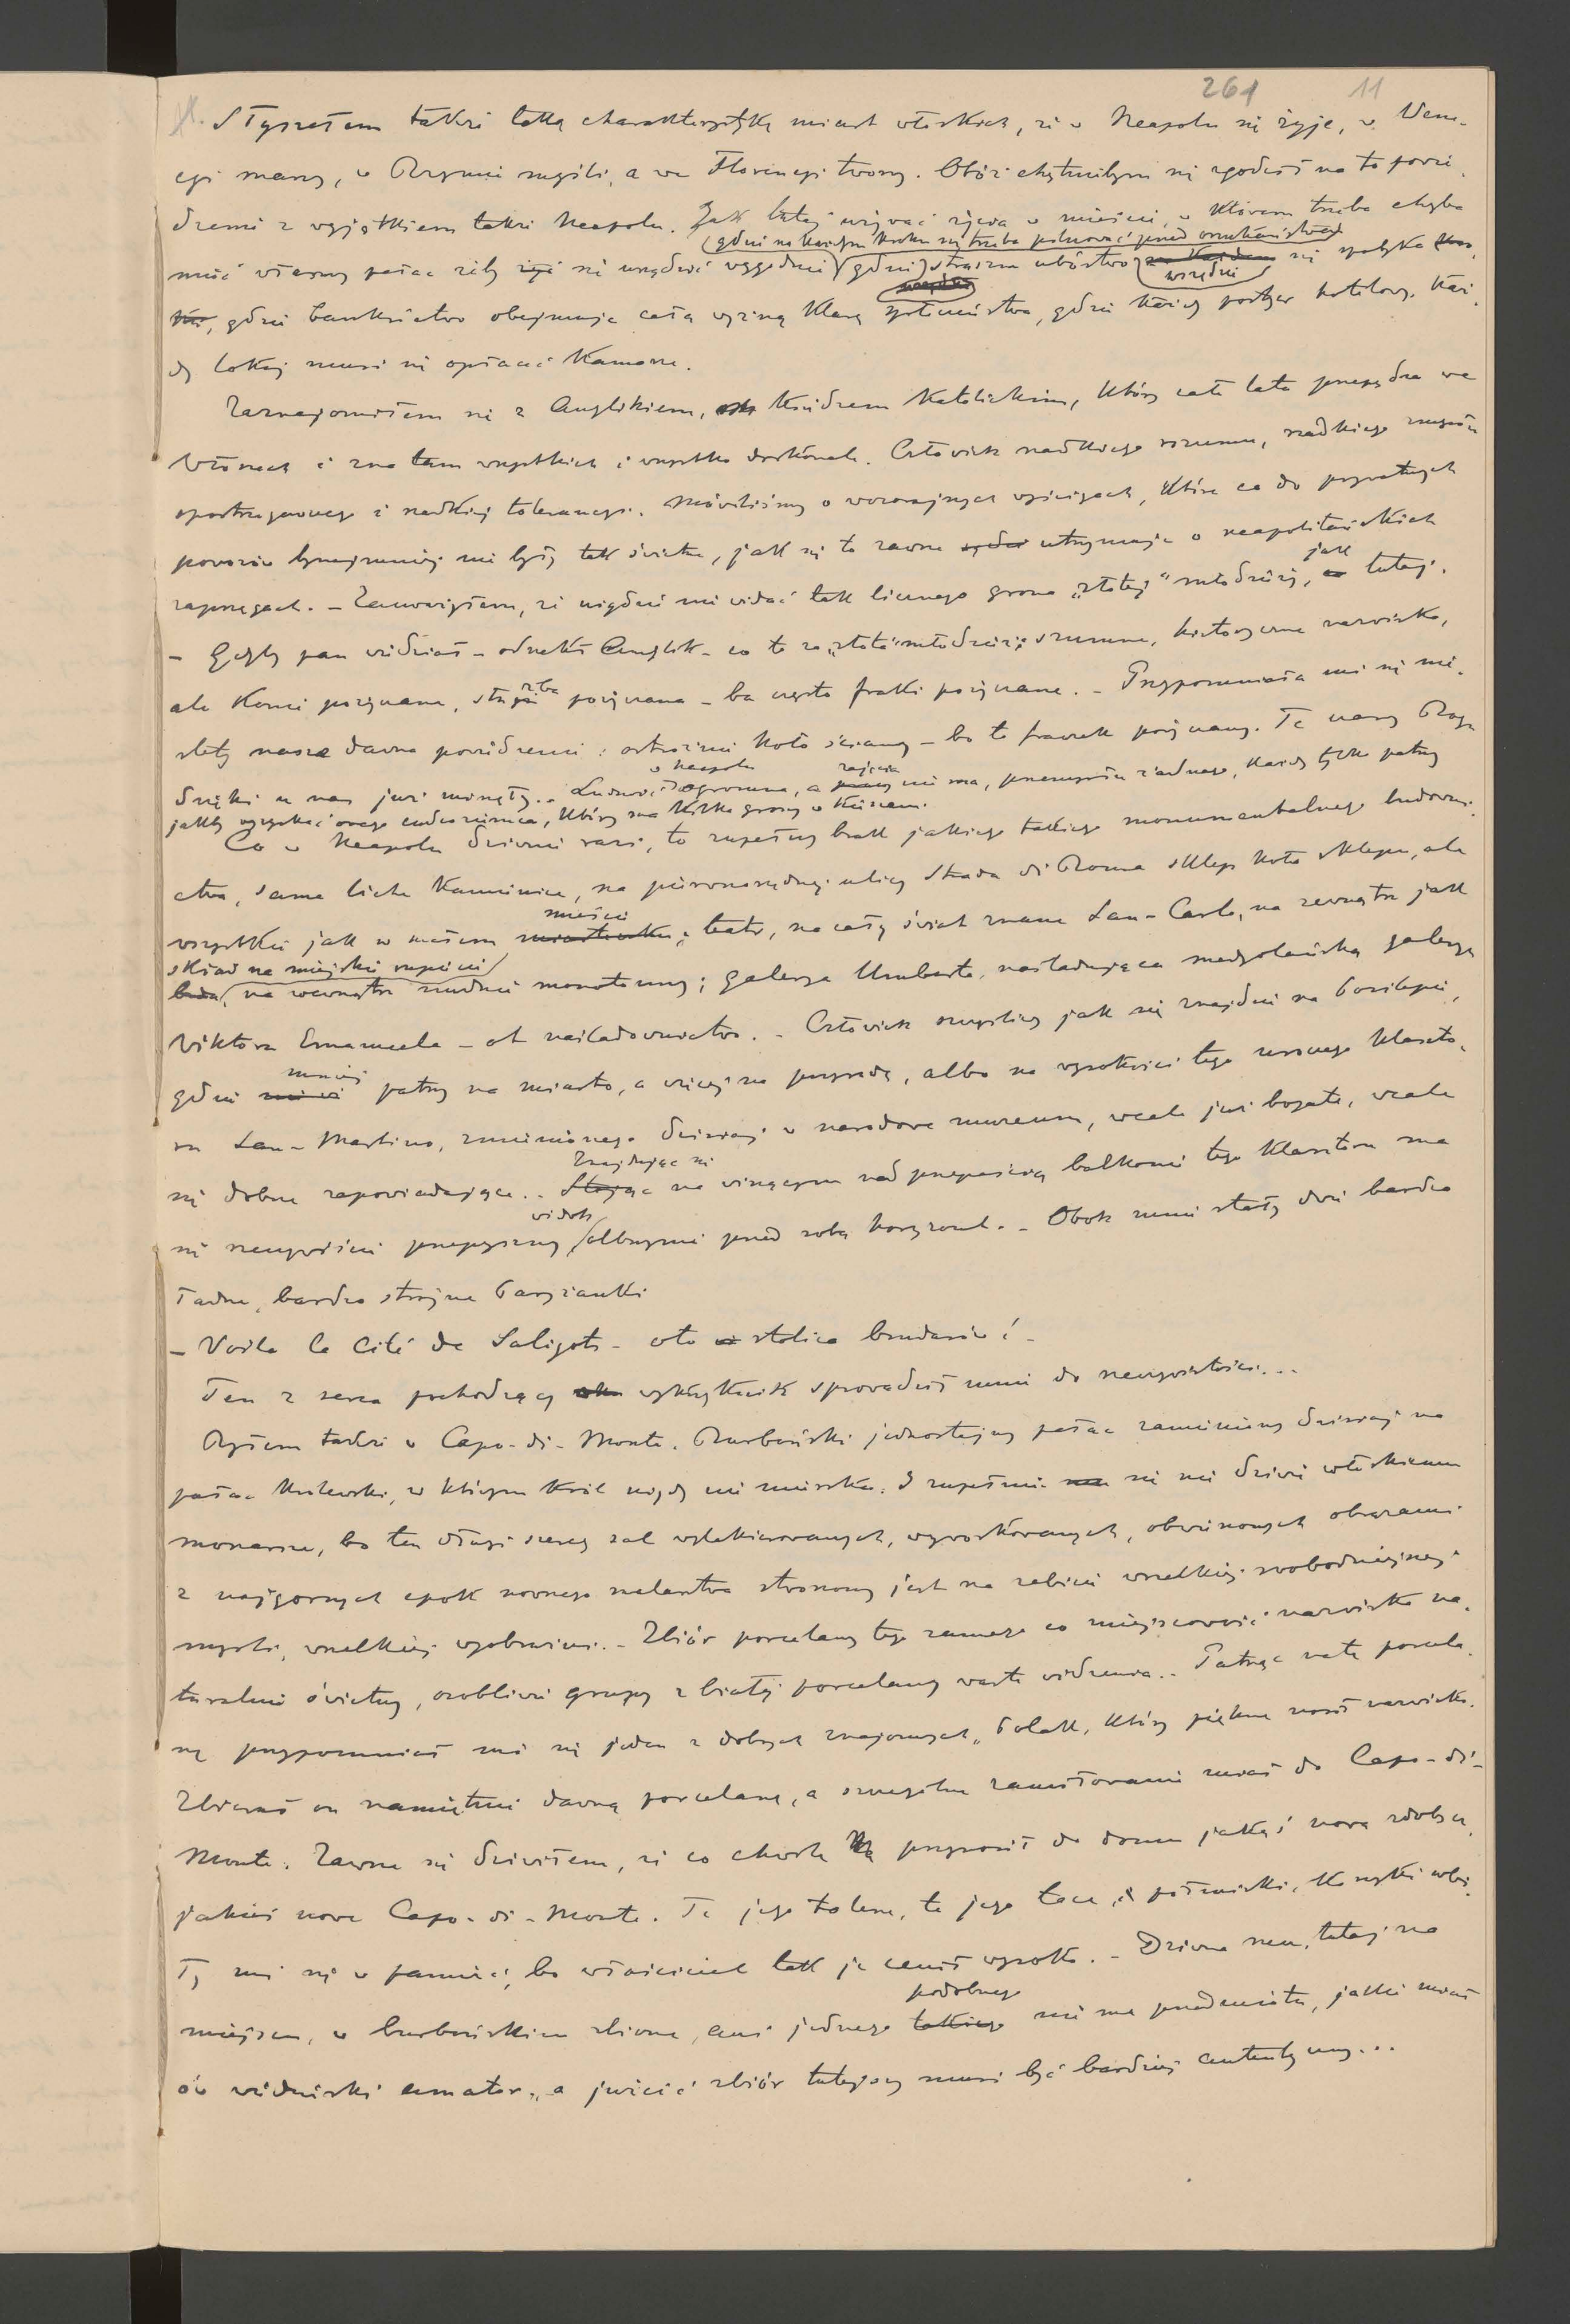 261 11
Słyszałem także taką charakterystykę miast włoskich, że w Neapolu się żyje, w Wene-
cyi marzy, w Rzymie myśli, a we Florencyi tworzy. Otóż chętniebym się zgodził na to powie-
dzenie z wyjątkiem także Neapolu. Jak tutaj używać życia w mieście, w którem trzeba chyba
(gdzie na każdym kroku się trzeba pilnować przed oszukaństwem)
mieć własny pałac żeby się urządzić wygodnie, gdzie straszne ubóstwo wszędzie się spotyka,
gdzie bankructwo obejmuje całą wyższą klasę społeczeństwa, gdzie każdy portyer hotelowy, każ-
dy lokaj musi się opłacać Kamorze.
Zaznajomiłem się z Anglikiem, księdzem katolickim, który całe lata przepędza we
Włoszech i zna tam wszystkich i wszystko doskonale. Człowiek rzadkiego rozumu, rzadkiego zmysłu
spostrzegawczego i rzadkiej tolerancyi. Mówiliśmy o wczorajszych wyścigach, które co do prywatnych
powozów bynajmniej nie były tak świetne, jak się to zawsze utrzymuje o neapolitańskich
zaprzęgach. - Zauważyłem, że nigdzie nie widać tak licznego grona „złotej" młodzieży, jak tutaj.
- Gdyby pan wiedział - odrzekł Anglik - co to za „złota" młodzież; szumne, historyczne nazwiska,
ale konie pożyczane, służba pożyczana - ba często fraki pożyczane. - Przypomniało mi się nie-
stety nasze dawne powiedzenie: ostrożnie koło ściany - bo to fraczek pożyczany. Te czasy Bogu
dzięki u nas już minęły. - Ludność w Neapolu ogromna, a zajęcia nie ma, przemysłu żadnego, każdy tylko patrzy
jakby wyzyskać owego cudzoziemca, który ma kilka groszy w kieszeni.
Co w Neapolu dziwnie razi, to zupełny brak jakiego takiego monumentalnego budowni-
ctwa, same liche kamienice, na pierwszorzędnej ulicy Strada di Roma sklep koło sklepu, ale
wszystko jak w małem mieście; teatr, na cały świat znane San-Carlo, na zewnątrz jak
skład na miejskie rupiecie, na wewnątrz nudnie monotonny; galerya Umberta, naśladująca medyolańską galeryę
Wiktora Emanuela - ot naśladownictwo. - Człowiek oszyści jak się znajdzie na Posilipie,
gdzie mniej patrzy na miasto, a więcej na przyrodę, albo na wysokości tego klaszto-
ru San-Martino, zmienionego dzisiaj w narodowe muzeum, wcale już bogate, wcale
się dobrze zapowiadające. - Znajdując się na wiszącym nad przepaścią balkonie tego klasztoru ma
się rzeczywiście przepyszny widok olbrzymi przed sobą horyzont. - Obok mnie stały dwie bardzo
ładne, bardzo strojne Paryżanki
- Voila la Cité de Saligots - oto stolica brudasów! -
Ten z serca pochodzący wykrzyknik sprowadził mnie do rzeczywistości...
Byłem także w Capo-di-Monte. Burboński jednostajny pałac zamieniony dzisiaj na
pałac królewski, w którym król nigdy nie mieszka. I zupełnie się nie dziwię włoskiemu
monarsze, bo ten długi szereg sal wylakierowanych, wywoskowanych, obwieszonych obrazami
z najgorszych epok nowszego malarstwa stworzony jest na zabicie wszelkiej swobodniejszej
myśli, wszelkiej wyobraźni. - Zbiór porcelany tego samego co miejscowość nazwiska na-
turalnie świetny, osobliwie grupy z białej porcelany warte widzenia. - Patrząc na tę porcela-
nę przypomniał mi się jeden z dobrych znajomych, Polak, który piękne nosił nazwisko.
Zbierał on namiętnie dawną porcelanę, a szczególne zamiłowanie miał do Capo-di-
Monte. Zawsze się dziwiłem, że co chwila przynosił do domu jakąś nową zdobycz,
jakieś nowe Capo-di-Monte. Te jego talerze, te jego tace, półmiski, koszyki wbi-
ły mi się w pamięć, bo właściciel tak je cenił wysoko. - Dziwna rzecz, tutaj na
miejscu, w burbońskim zbiorze, ani jednego podobnego nie ma przedmiotu, jakie miał
ów wiedeński amator, a juścić zbiór tutejszy musi być bardziej autentyczny...